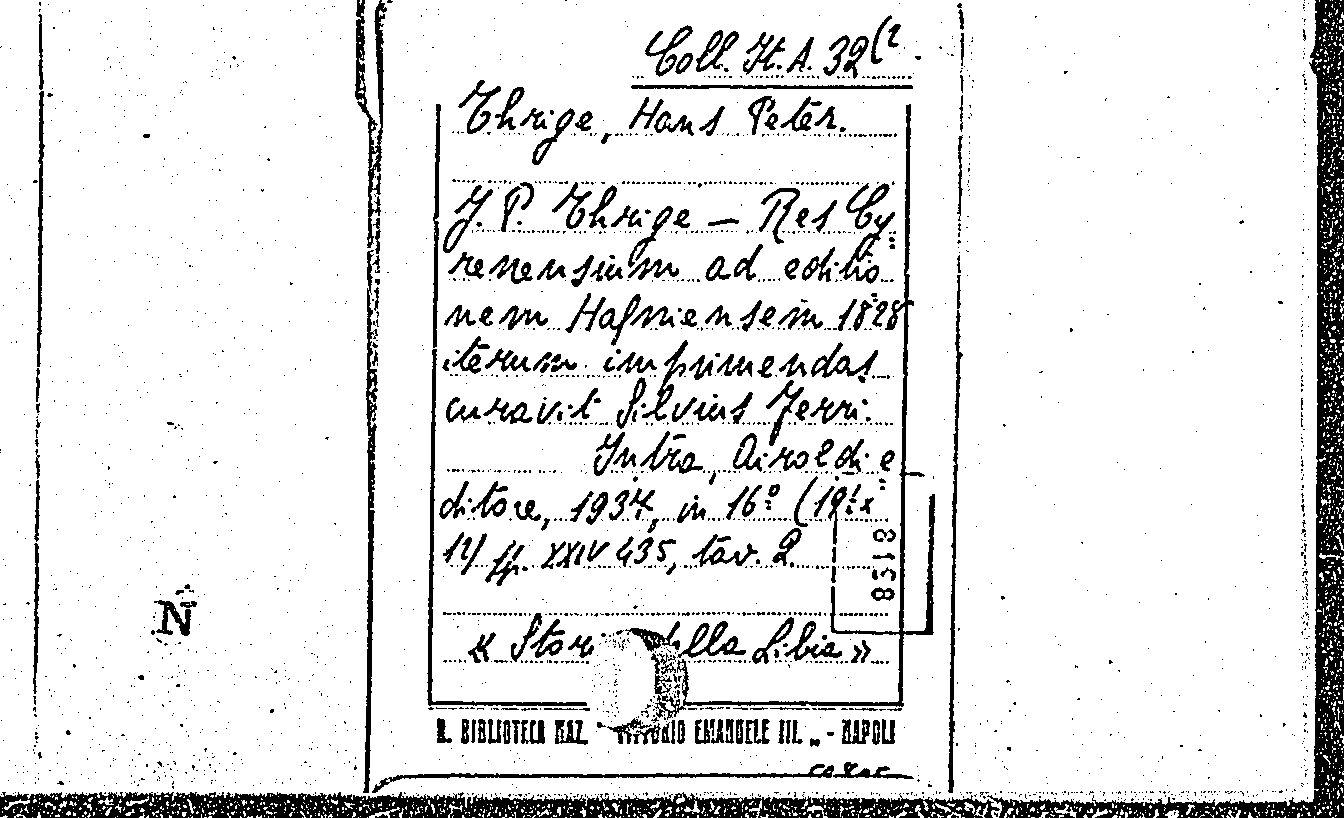 Coll. It. A. 32(2.
Thrige, Hans Peter.
J. P. Thrige — Res Cy"
renensium ad editio"
nem Hafniensem 1828
iterum imprimendas
curavit Silvius Ferri.
Intra, Airoldi e"
ditore, 1937, in 16º (19!x
12) pp. XXIV 435, tav. 2.
8518
« Stor della Libia »
N
R. BIBLIOTECA NAZ. VITTORIO EMANUELE III. „ - NAPOLI